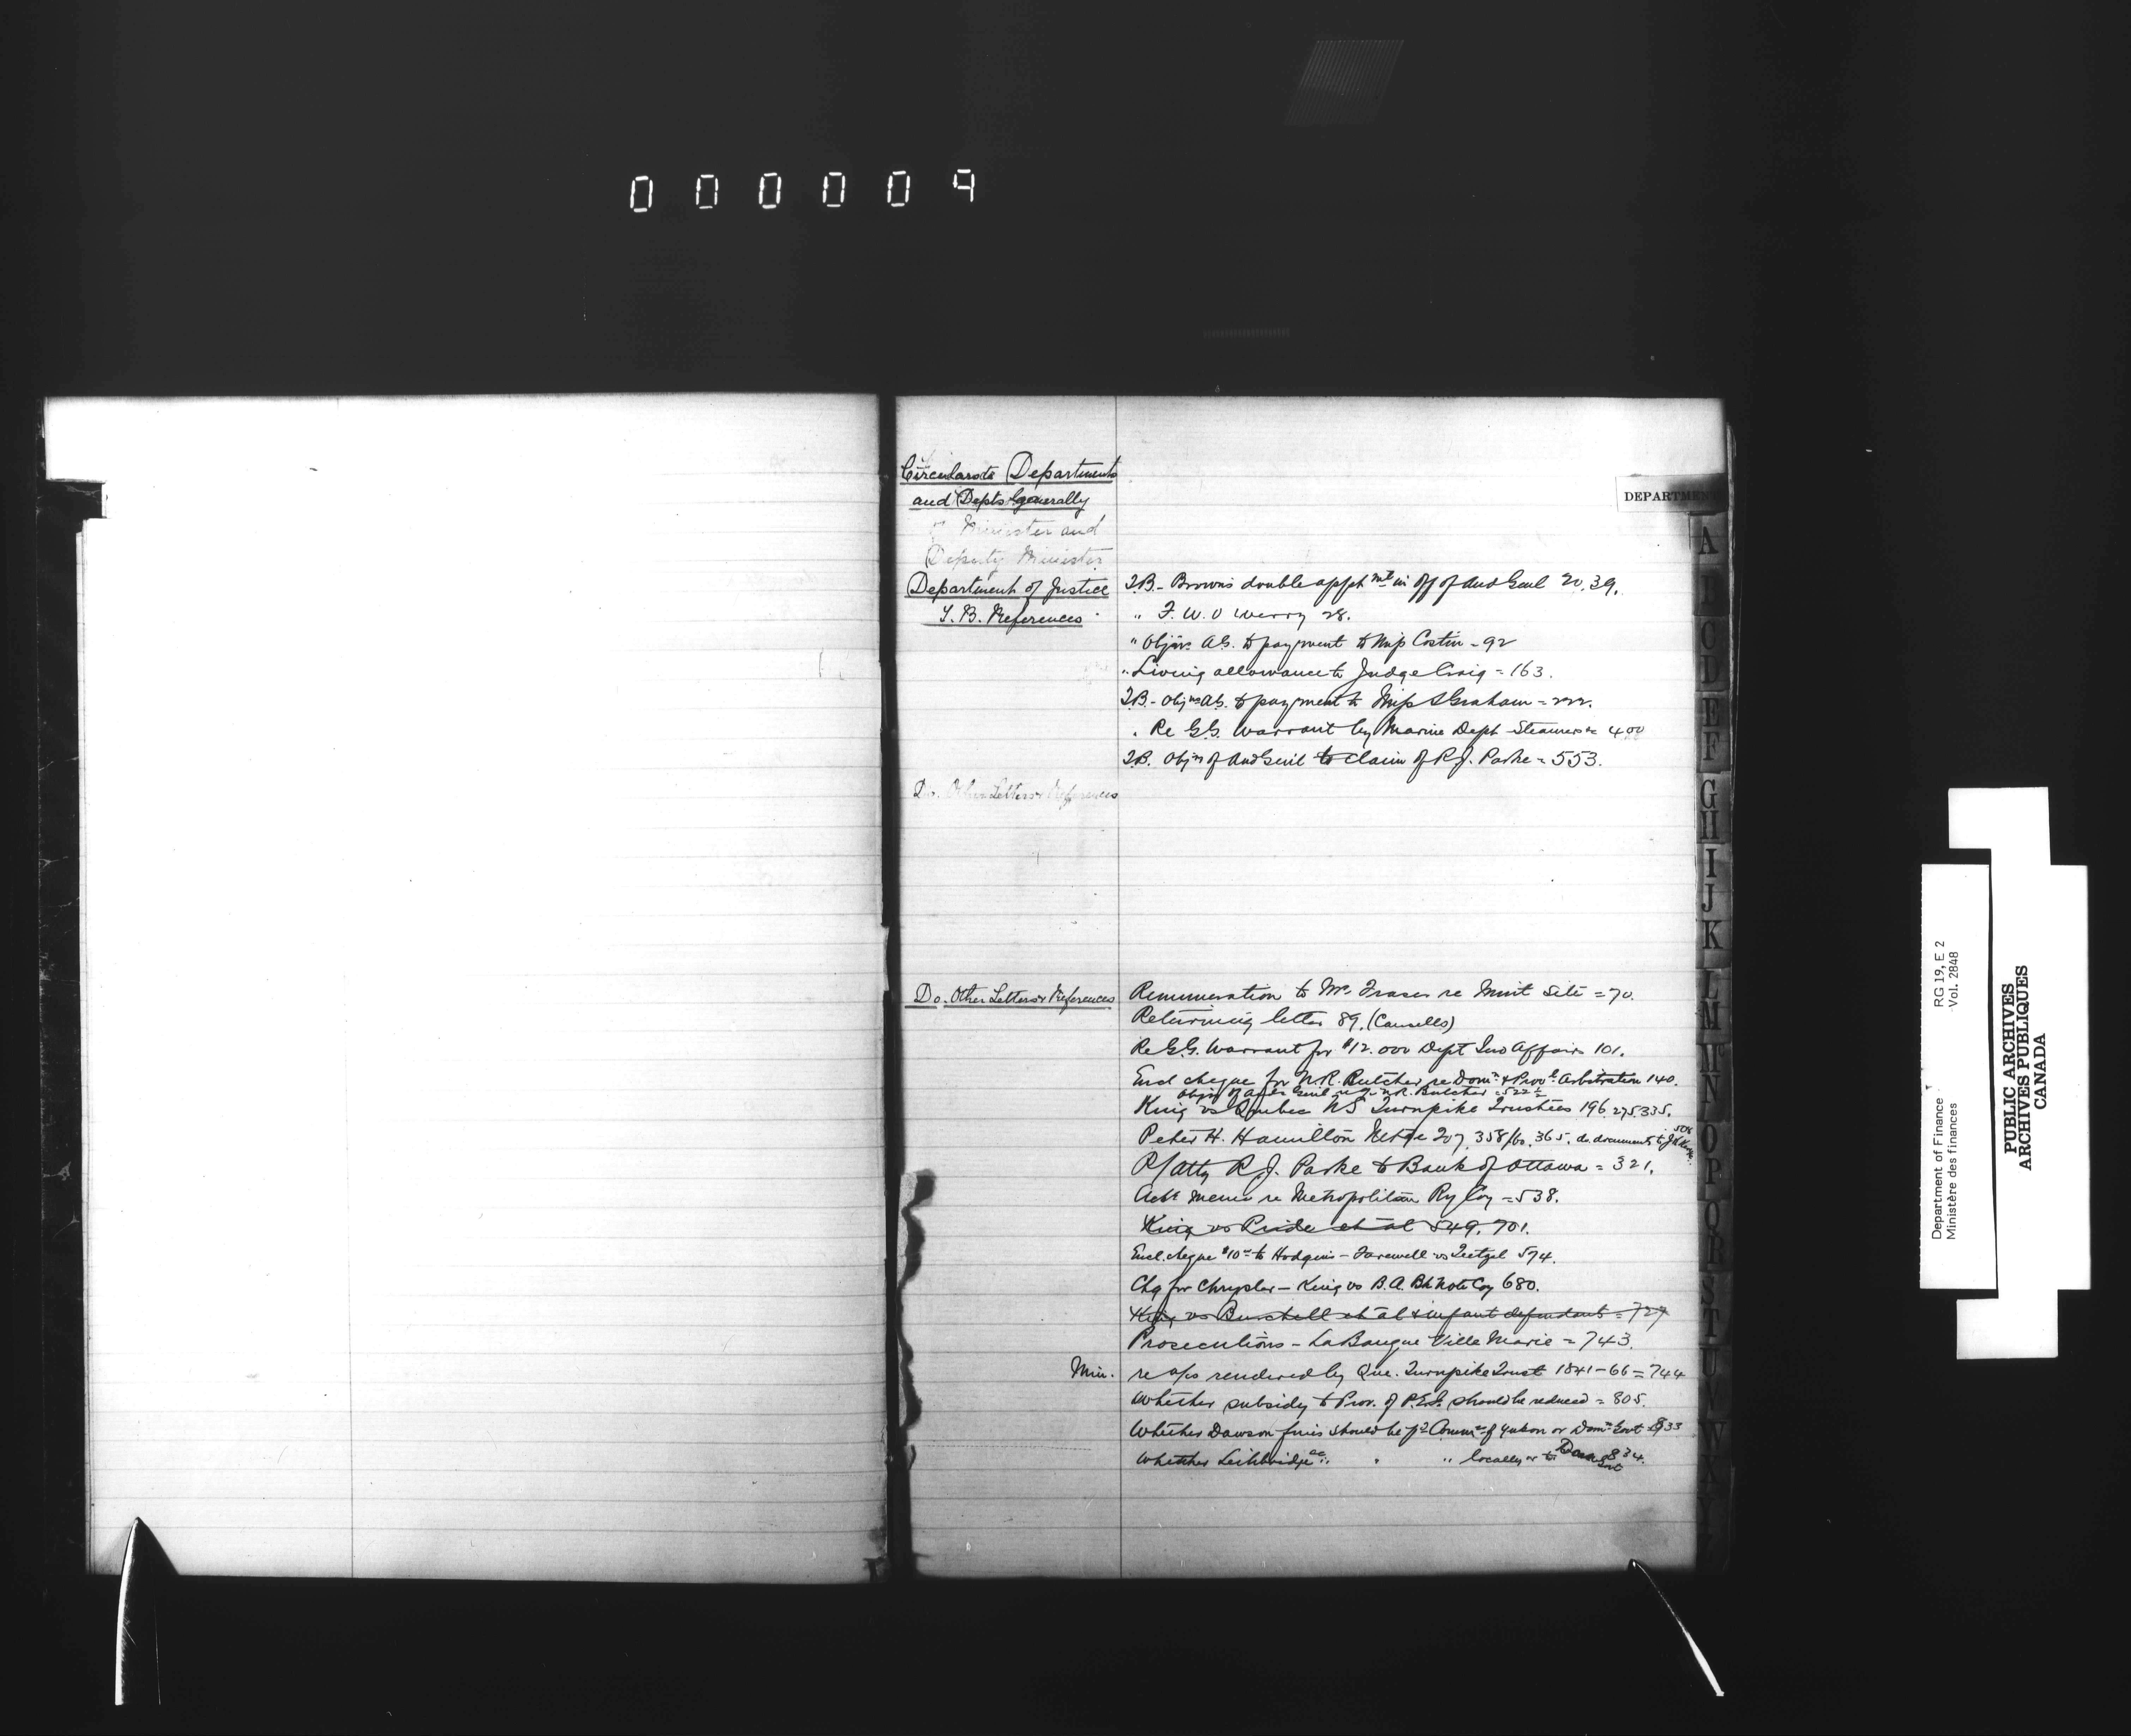 000009
Circulars to Departments
and Depts generally
Minister and
Deputy Minister
DEPARTMENT
Department of Justice
T.B. References
T.B. - Brown's double appt mt in off of Aud Genl 20.39.
" F. W. O Werry 28.
" Objns A.G. to payment to Miss Costin - 92
" Living allowance to Judge Craig = 163.
T.B. - Objns A.G. to payment to Miss S Graham = 222.
" Re G.G. Warrant by Marine Dept Steamers = 400
T.B. Objn of Aud Genl to claim of R.J. Parke = 553.
Do. Other Letters & References
Do. Other Letters & References
Remuneration to Mr. Fraser re Mint Site = 70.
Returning letter 89. (Cassells)
Re G.G. Warrant for $12.000 Dept Ind Affairs 101.
Encl cheque for N.R. Butcher re Domn & Provl Arbitration 140.
King vs Quebec N S Turnpike Trustees 196. 275. 335.
Peter H. Hamilton 207, 358/60. 365. do. documents to
508
P/Atty R.J. Parke to Bank of Ottawa = 321.
Ackt Memo re Metropolitan Ry Coy = 538.
King vs Pride et al 549. 701.
Encl. cheque $10 to Hodgins - Farewell vs 574.
Chq for Chrysler - King vs B.A. Bk Note Coy 680.
King vs Burchell et al & infant defendant = 727
Prosecutions - La Banque Ville Marie = 743.
Min. re a/cs rendered by Que. Turnpike Trust 1841-66 = 744
Whether subsidy to Prov. of P.E.I. should be reduced = 805.
Whether Dawson fines should be pd Commr of Yukon or Domn Govt 833
Whether Lethbridge " " " locally or to Domn Govt 834.
A
B
C
D
E
F
G
H
I
J
K
L
M
Mc
N
O
P
Q
R
S
T
U
V
W
X
Y
Department of Finance
Ministère des finances
RG 19, E 2
Vol. 2848
PUBLIC ARCHIVES
ARCHIVES PUBLIQUES
CANADA